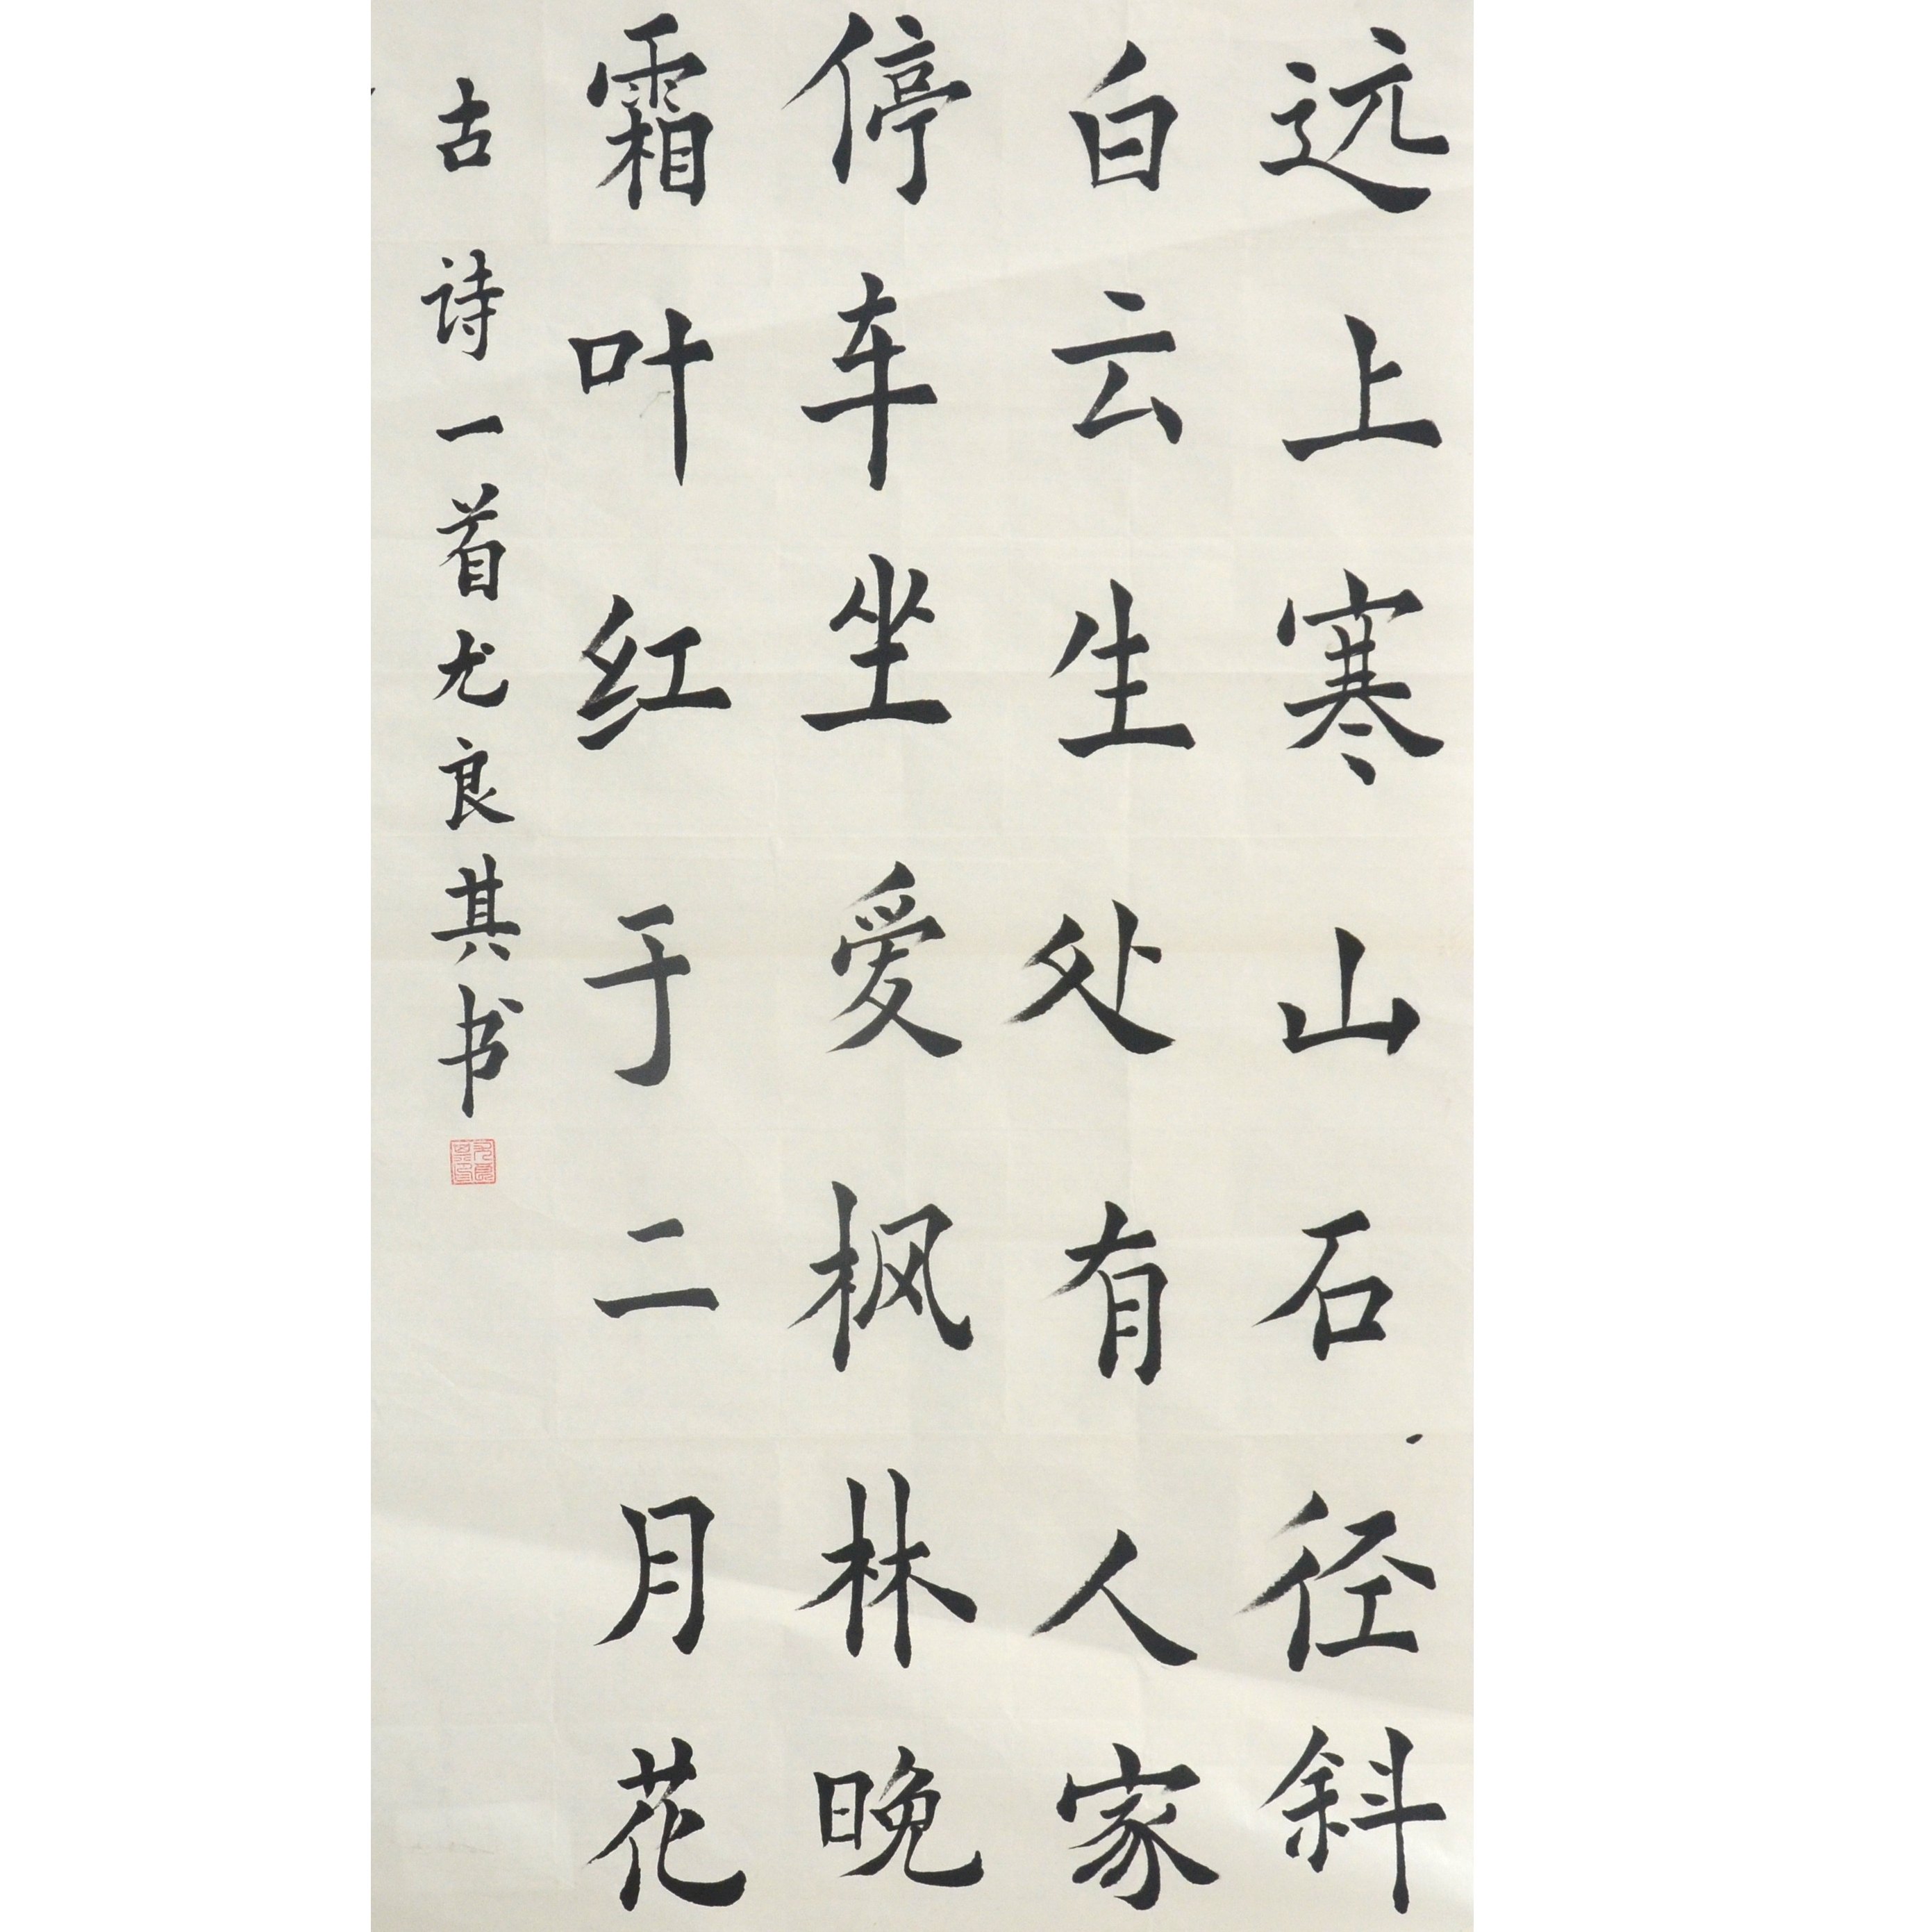 远上寒山石径斜
白云生处有人家
停车坐爱枫林晚
霜叶红于二月花
古诗一首尤良其书